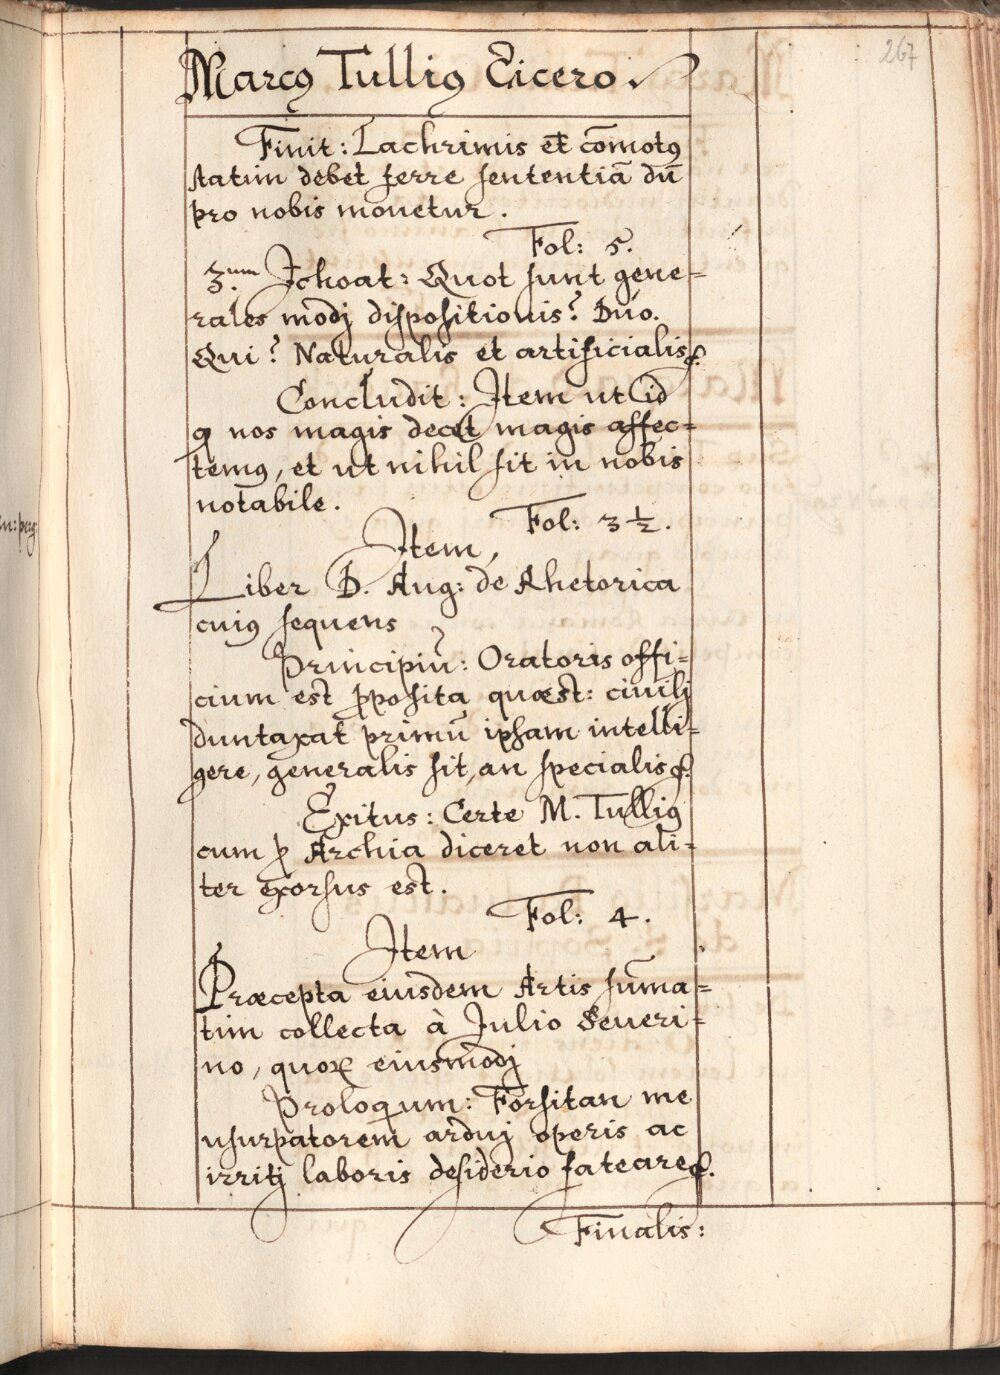 267
Marcꝯ Tulliꝯ Cicero.
Finit: Lachrimis et cōmotꝯ
statim debet ferre sententiā dū
pro nobis monetur.
Fol: 5.
3.um Ichoat: Quot sunt gene=
rales modj dispositionis? Duo.
Qui? Naturalis et artificialis &.
Concludit: Item ut id
ꝙ nos magis decet magis affec=
temꝯ, et ut nihil sit in nobis
notabile.
Fol: 3½.
Item,
Liber D. Aug: de Rhetorica
cuiꝯ sequens
Principiū: Oratoris offi=
cium est ꝓposita quæst: civilj
duntaxat primū ipsam intelli=
gere, generalis sit, an specialis &.
Exitus: Certe M. Tulliꝯ
cum ꝓ Archia diceret non ali=
ter exorsus est.
Fol: 4.
Item
Præcepta eiusdem Artis sūma=
tim collecta à Julio Seueri=
no, quoꝝ eiusmodj
Prologum: Forsitan me
usurpatorem arduj operis ac
irritj laboris desiderio fateare &.
Finalis: